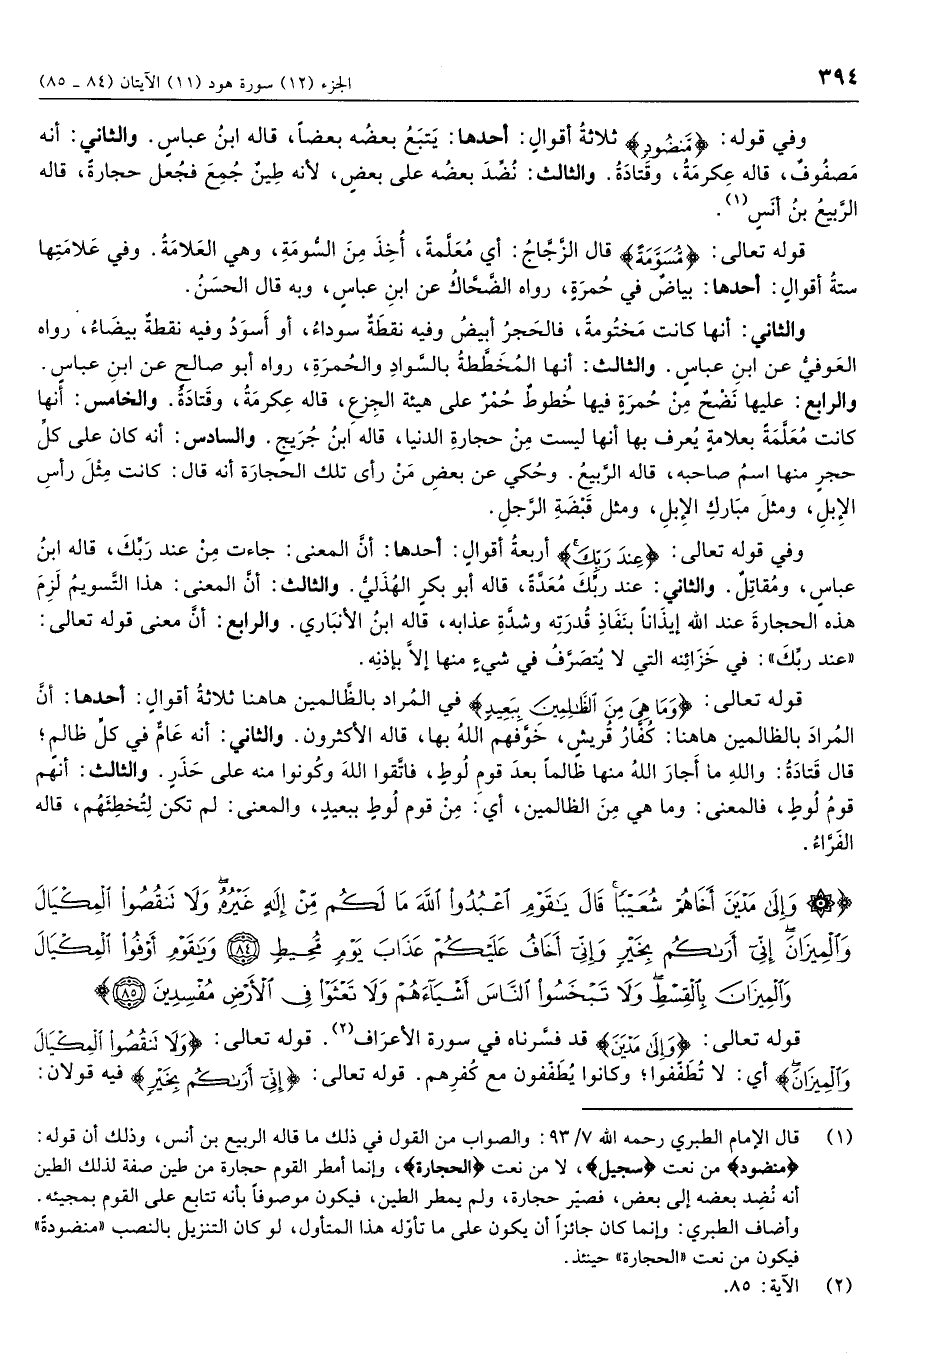 ٣٩٤
الجزء (١٢) سورة هود (١١) الآيتان (٨٤ ـ ٨٥)
وفي قوله: ﴿مَّنضُودٍ﴾ ثلاثةُ أقوالٍ: أحدها: يَتبَعُ بعضُه بعضاً، قاله ابنُ عباسٍ. والثاني: أنه
مَصفُوفٌ، قاله عِكرمَةُ، وقَتادَةُ. والثالث: نُضِّدَ بعضُه على بعضٍ، لأنه طِينٌ جُمِعَ فجُعل حجارةً، قاله
الرَّبيعُ بنُ أنَسٍ(١).
قوله تعالى: ﴿مُسَوَّمَةً﴾ قال الزَّجَّاجُ: أي مُعَلَّمةً، أُخِذَ مِنَ السُّومَةِ، وهي العَلامَةُ. وفي عَلامَتِها
ستةُ أقوالٍ: أحدها: بياضٌ في حُمرَةٍ، رواه الضَّحَّاكُ عن ابنِ عباسٍ، وبه قال الحسَنُ.
والثاني: أنها كانت مَختُومةً، فالحَجرُ أبيضُ وفيه نقطَةٌ سوداءُ، أو أَسوَدُ وفيه نقطةٌ بيضَاءُ، رواه
العَوفيُّ عن ابنِ عباسٍ. والثالث: أنها المُخَطَّطةُ بالسَّوادِ والحُمرَةِ، رواه أبو صالحٍ عن ابنِ عباسٍ.
والرابع: عليها نَضْحٌ مِنْ حُمرَةٍ فيها خُطوطٌ حُمْرٌ على هيئة الجِزعِ، قاله عِكرمَةُ، وقَتادَةُ. والخامس: أنها
كانت مُعَلَّمَةً بعلامةٍ يُعرف بها أنها ليست مِنْ حجارةِ الدنيا، قاله ابنُ جُرَيجٍ. والسادس: أنه كان على كلِّ
حجرٍ منها اسمُ صاحبه، قاله الرَّبيعُ. وحُكي عن بعضِ مَنْ رأى تلك الحجارَة أنه قال: كانت مِثْلَ رأسِ
الإِبلِ، ومثلَ مبَاركِ الإبلِ، ومثل قَبْضَةِ الرَّجلِ.
وفي قوله تعالى: ﴿عِندَ رَبِّكَ﴾ أربعةُ أقوالٍ: أحدها: أنَّ المعنى: جاءت مِنْ عند رَبِّكَ، قاله ابنُ
عباسٍ، ومُقاتِلٌ. والثاني: عند ربِّكَ مُعَدَّةً، قاله أبو بكرٍ الهُذَليُّ. والثالث: أنَّ المعنى: هذا التَّسويمُ لَزِمَ
هذه الحجارةَ عند الله إيذَاناً بنَفَاذِ قُدرَتِه وشدَّةِ عذابه، قاله ابنُ الأنبَاري. والرابع: أنَّ معنى قوله تعالى:
«عند ربِّكَ»: في خَزَائِنِه التي لا يُتصَرَّفُ في شيءٍ منها إلاَّ بإذنِه.
قوله تعالى: ﴿وَمَا هِيَ مِنَ ٱلظَّٰلِمِينَ بِبَعِيدٍ﴾ في المُراد بالظَّالمين هاهنا ثلاثةُ أقوالٍ: أحدها: أنَّ
المُرادَ بالظالمين هاهنا: كُفَّارُ قُريش، خَوَّفهم اللهُ بها، قاله الأكثرون. والثاني: أنه عَامٌّ في كلِّ ظالم؛
قال قَتادَةُ: واللهِ ما أجارَ اللهُ منها ظالماً بعدَ قومِ لُوطٍ، فاتَّقوا اللهَ وكُونوا منه على حَذَرٍ. والثالث: أنهُم
قومُ لُوطٍ، فالمعنى: وما هي مِنَ الظالمين، أي: مِنْ قومِ لوطٍ ببعيدٍ، والمعنى: لم تكن لِتُخطِئَهُم، قاله
الفَرَّاءُ.
﴿۞ وَإِلَىٰ مَدْيَنَ أَخَاهُمْ شُعَيْبًا ۚ قَالَ يَٰقَوْمِ ٱعْبُدُوا۟ ٱللَّهَ مَا لَكُم مِّنْ إِلَٰهٍ غَيْرُهُۥ ۖ وَلَا نَنقُصُوا۟ ٱلْمِكْيَالَ
وَٱلْمِيزَانَ ۚ إِنِّىٓ أَرَىٰكُم بِخَيْرٍ وَإِنِّىٓ أَخَافُ عَلَيْكُمْ عَذَابَ يَوْمٍ مُّحِيطٍ ٨٤ وَيَٰقَوْمِ أَوْفُوا۟ ٱلْمِكْيَالَ
وَٱلْمِيزَانَ بِٱلْقِسْطِ ۖ وَلَا تَبْخَسُوا۟ ٱلنَّاسَ أَشْيَآءَهُمْ وَلَا تَعْثَوْا۟ فِى ٱلْأَرْضِ مُفْسِدِينَ ٨٥﴾
قوله تعالى: ﴿وَإِلَىٰ مَدْيَنَ﴾ قد فسَّرناه في سورة الأعرَاف(٢). قوله تعالى: ﴿وَلَا نَنقُصُوا۟ ٱلْمِكْيَالَ
وَٱلْمِيزَانَ﴾ أي: لا تُطَفِّفوا؛ وكانوا يُطَفِّفون مع كُفرِهم. قوله تعالى: ﴿إِنِّىٓ أَرَىٰكُم بِخَيْرٍ﴾ فيه قولان:
(١) قال الإمام الطبري رحمه الله ٧/ ٩٣: والصواب من القول في ذلك ما قاله الربيع بن أنس، وذلك أن قوله:
﴿منضود﴾ من نعت ﴿سجيل﴾، لا من نعت ﴿الحجارة﴾، وإنما أمطر القوم حجارة من طين صفة لذلك الطين
أنه نُضِد بعضه إلى بعض، فصيّر حجارة، ولم يمطر الطين، فيكون موصوفاً بأنه تتابع على القوم بمجيئه.
وأضاف الطبري: وإنما كان جائزاً أن يكون على ما تأوّله هذا المتأول، لو كان التنزيل بالنصب «منضودة»
فيكون من نعت «الحجارة» حينئذ.
(٢) الآية: ٨٥.